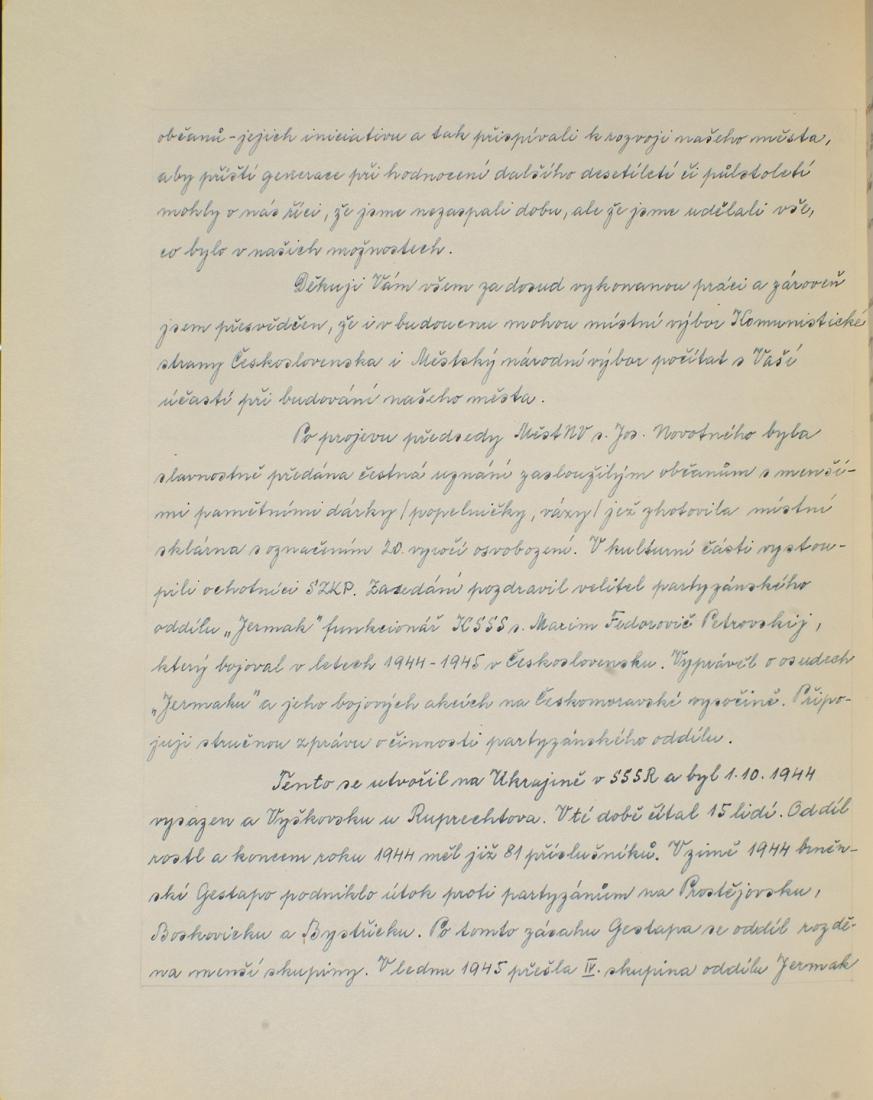 občanů - jejich iniciativu a tak přispívali k rozvoji našeho města,
aby příští generace při hodnocení dalšího desetiletí či půlstoletí
mohly o nás říci, že jsme nezaspali dobu, ale že jsme udělali vše,
co bylo v našich možnostech.
Děkuji Vám všem za dosud vykonanou práci a zároveň
jsem přesvědčen, že i v budoucnu mohou místní výbor Komunistické
strany Československa i Městský národní výbor počítat s Vaší
účastí při budování našeho města.
Po projevu předsedy MěstNV s. Jos. Novotného byla
slavnostně předána čestná uznání zasloužilým občanům s menší-
mi pamětními dárky /popelničky, vázy/ jež zhotovila místní
sklárna s označením 20. výročí osvobození. V kulturní části vystou-
pili ochotníci SZKP. Zasedání pozdravil velitel partyzánského
oddílu „Jermak" funkcionář KSSS s. Maxim Fedorovič Petrovskij,
který bojoval v letech 1944 - 1945 v Československu. Vyprávěl o osudech
„Jermaku" a jeho bojových akcích na Českomoravské vysočině. Připo-
juji stručnou zprávu o činnosti partyzánského oddílu.
Tento se utvořil na Ukrajině v SSSR a byl 1.10. 1944
vysazen a Vyškovsku u Ruprechtova. V té době čítal 15 lidí. Oddíl
rostl a koncem roku 1944 měl již 81 příslušníků. V zimě 1944 brněn-
ské Gestapo podniklo útok proti partyzánům na Prostějovsku,
Boskovicku a Bystřicku. Po tomto zásahu Gestapa se oddíl rozdě-
na menší skupiny. V lednu 1945 přešla IV. skupina oddílu Jermak